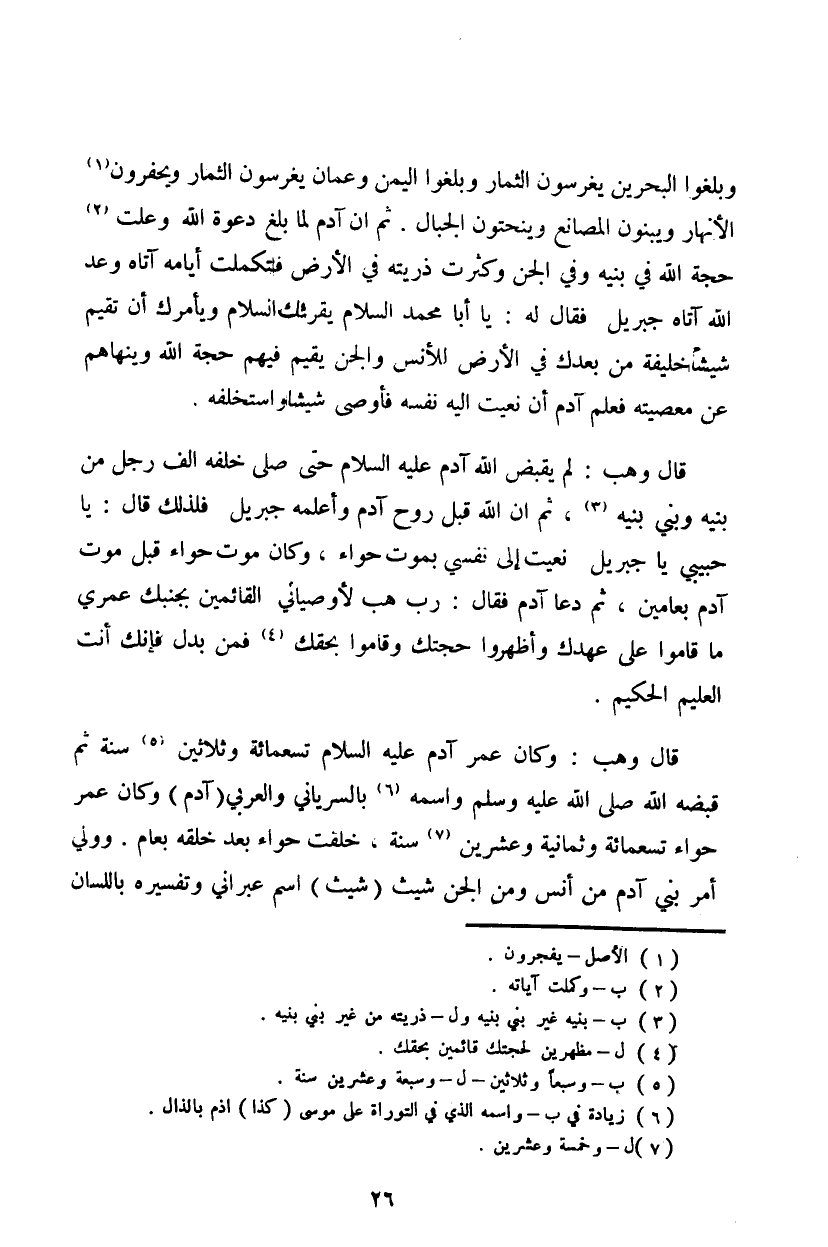 وبلغوا البحرين يغرسون الثمار وبلغوا اليمن وعمان يغرسون الثمار ويحفرون(١)
الأنهار ويبنون المصانع وينحتون الجبال . ثم ان آدم لما بلغ دعوة الله وعلت (٢)
حجة الله في بنيه وفي الجن وكثرت ذريته في الأرض فلتكملت أيامه آتاه وعد
الله آتاه جبريل فقال له : يا أبا محمد السلام يقرئك السلام ويأمرك أن تقيم
شيشاً خليفة من بعدك في الأرض للأنس والجن يقيم فيهم حجة الله وينهاهم
عن معصيته فعلم آدم أن نعيت اليه نفسه فأوصى شيشا واستخلفه .
قال وهب : لم يقبض الله آدم عليه السلام حتى صلى خلفه الف رجل من
بنيه وبني بنيه (٣) ، ثم ان الله قبل روح آدم وأعلمه جبريل فلذلك قال : يا
حبيبي يا جبريل نعيت إلى نفسي بموت حواء ، وكان موت حواء قبل موت
آدم بعامين ، ثم دعا آدم فقال : رب هب لأوصيائي القائمين بجنبك عمري
ما قاموا على عهدك وأظهروا حجتك وقاموا بحقك (٤) فمن بدل فإنك أنت
العليم الحكيم .
قال وهب : وكان عمر آدم عليه السلام تسعمائة وثلاثين (٥) سنة ثم
قبضه الله صلى الله عليه وسلم واسمه (٦) بالسرياني والعربي (آدم) وكان عمر
حواء تسعمائة وثمانية وعشرين (٧) سنة ، خلقت حواء بعد خلقه بعام . وولي
أمر بني آدم من أنس ومن الجن شيث (شيث) اسم عبراني وتفسيره باللسان
(١) الأصل – يفجرون .
(٢) ب – وكملت آياته .
(٣) ب – بنيه غير بني بنيه ول – ذريته من غير بني بنيه .
(٤) ل – مظهرين لحجتك قائمين بحقك .
(٥) ب – وسبعاً وثلاثين – ل – وسبعة وعشرين سنة .
(٦) زيادة في ب – واسمه الذي في التوراة على موسى (كذا) اذم بالذال .
(٧) ل – وخمسة وعشرين .
٢٦